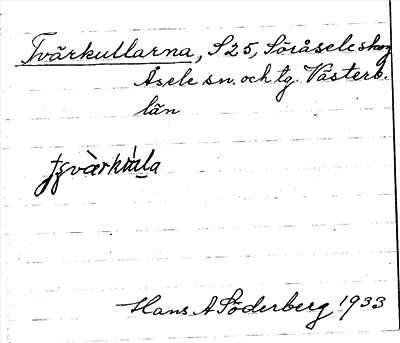 Tvärkullarna, S25, Söråsele skog
Åsele sn. och tg. Västerb.
län
Hans A Söderberg 1933